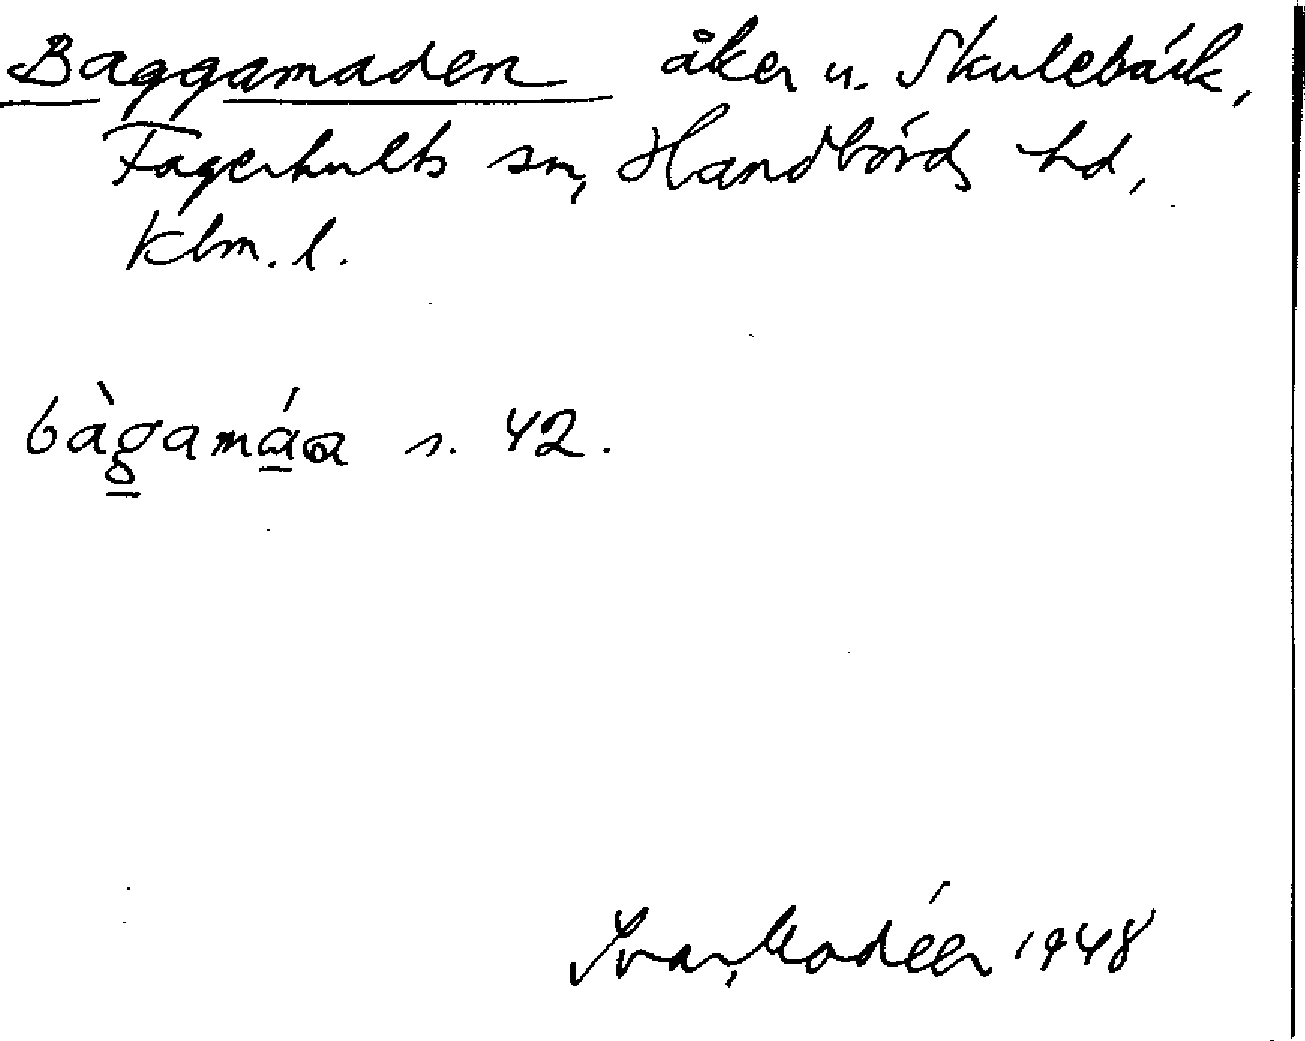 Baggamaden åker u. Skulebäck,
Fagerhults sn, Handbörds hd,
Klm. l.
bàgamáa s. 42.
Ivar Modéer 1948